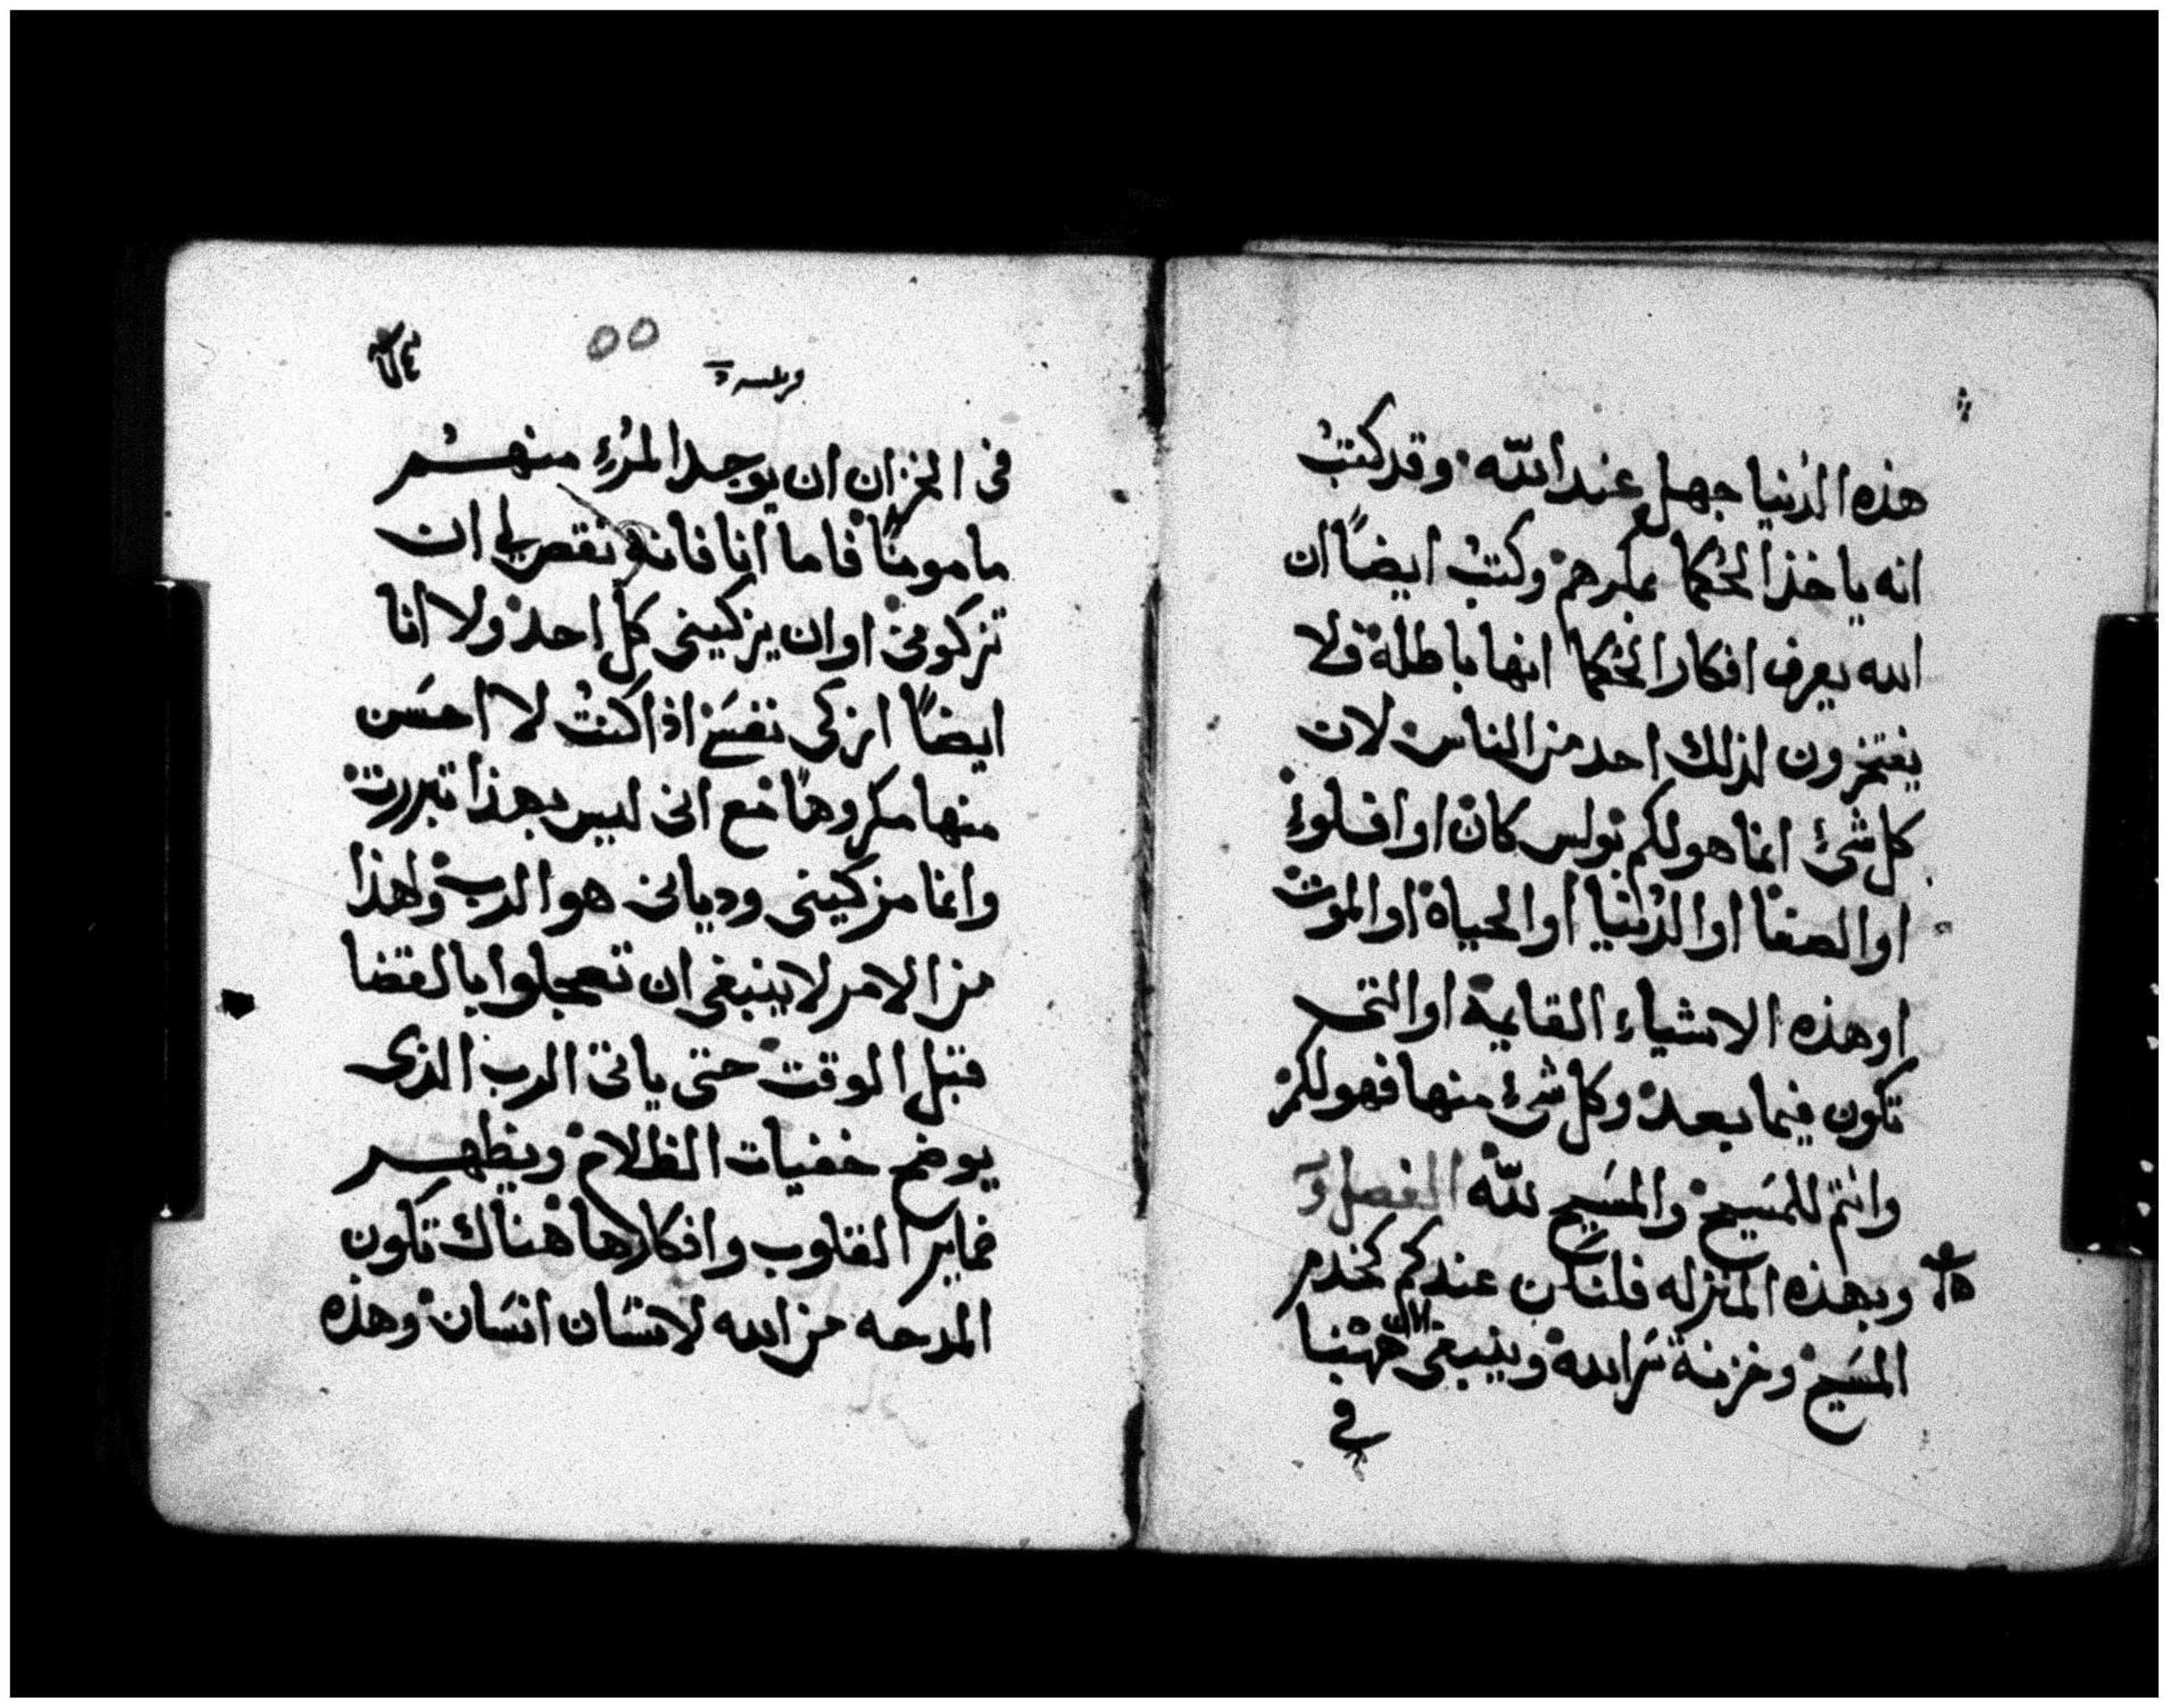 هذه الدنيا جهل عند الله وقد كتبْ
انه ياخذ الحكما بمكرهم وكتبْ ايضاً ان
الله يعرف افكار الحكما انها باطلة ولا
يفتخرون لذلك احد من الناس لان
كل شئ انما هو لكم بولس كان او افلوءِ
او الصفا او الدُنيا او الحياة او الموت
او هذه الاشياء القايمة او التى
تكون فيما بعد وكل شئ منها فهو لكم
وانتم للمسَيح والمسَيح لله الفصل
وبهذه المنزله فلنكن عندكم كخدم
المسَيح وخزنة سَرالله وينبغى الان ههُنا
فى
٥٥
فى الخزان ان يوجد المرُءِ منهُم
مامومناً فاما انا فانه نقص لى ان
تزكونى او ان يزكينى كل احد ولا انا
ايضاً ازكى نفسَى اذا كنتُ لا احسَن
منها مكروهاً مع انى ليس بهذا تبررت
وانما مزكينى وديانى هو الرب ولهذا
من الامر لا ينبغى ان تعجلوا بالقضا
قبل الوقت حتى ياتى الرب الذى
يوضح خفيات الظلام ويظهر
ضماير القلوب وافكارها هناك تكون
المدحه من الله لانسَان انسَان وهذه